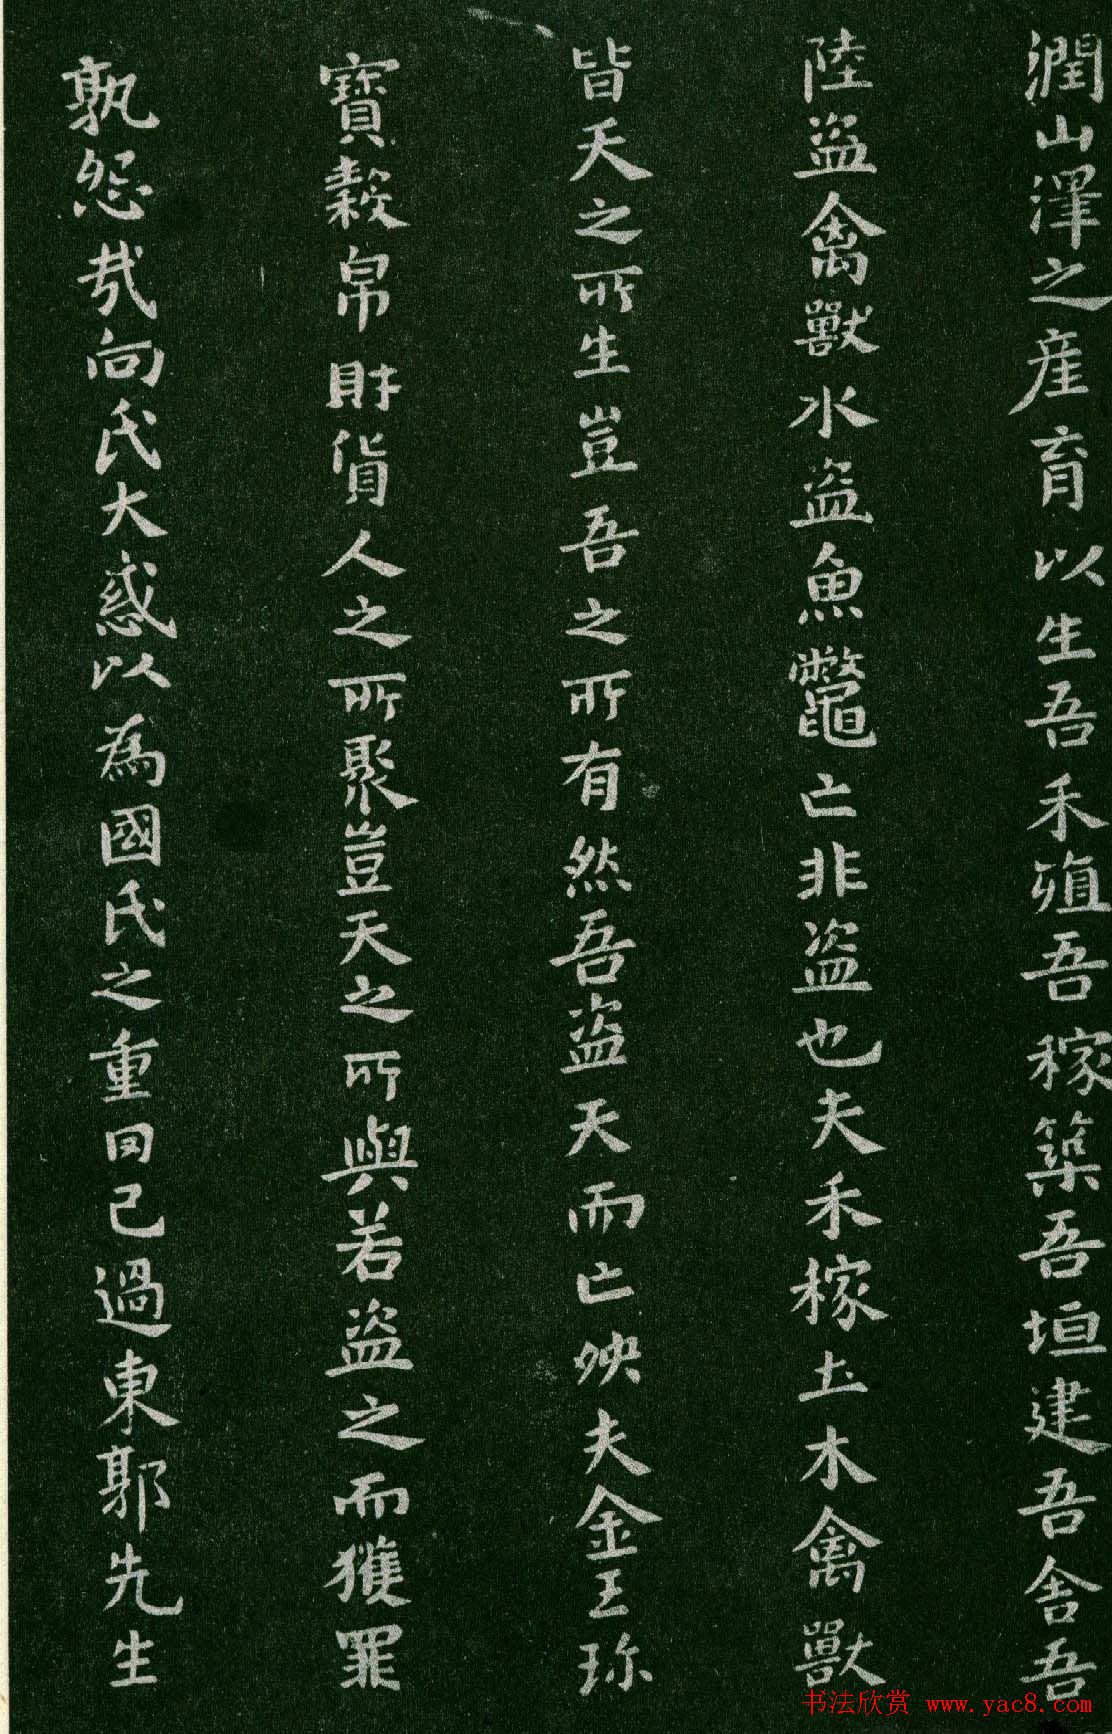 潤山澤之産育以生吾禾殖吾稼築吾垣建吾舎吾
陸盗禽獸水盗魚鼈亡非盗也夫禾稼土木禽獸
皆天之所生豈吾之所有然吾盗天而亡殃夫金玉珎
寶穀帛財貨人之所聚豈天之所與若盗之而獲罪
孰怨㢤向氏大惑以為國氏之重罔己過東郭先生
书法欣赏 www.yac8.com